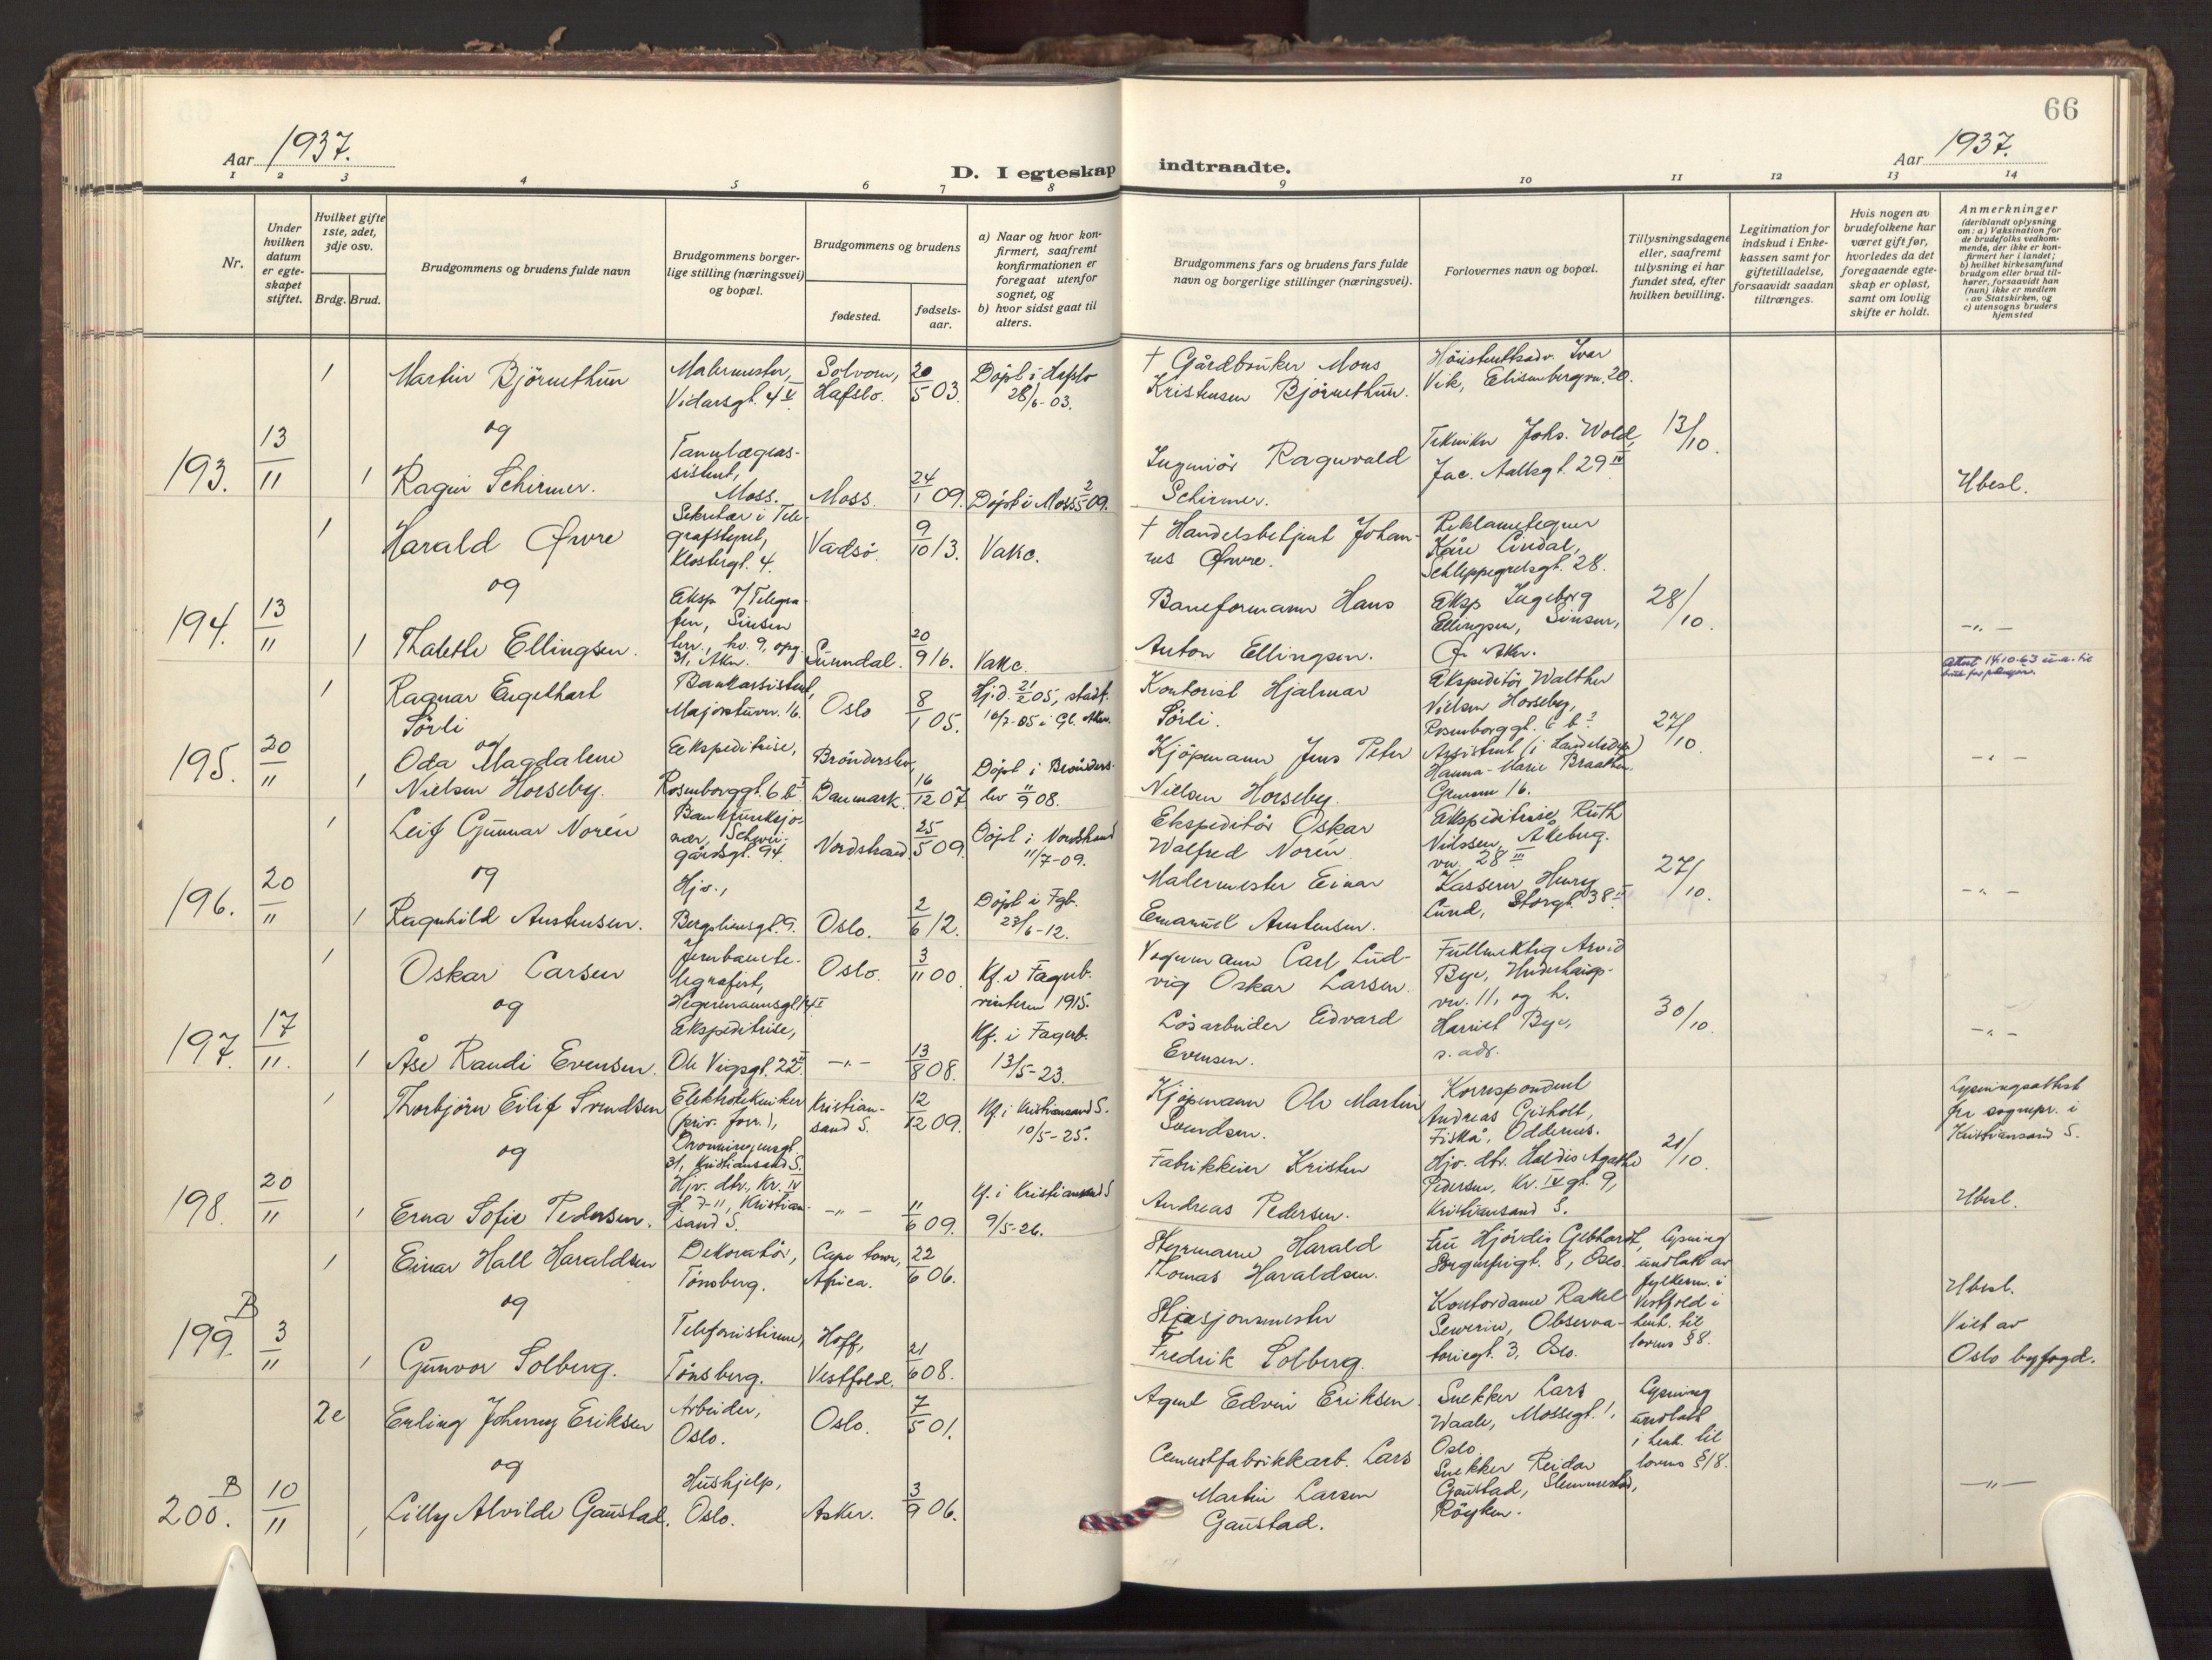 66
Aar 1937.
D. I egteskap indtraadte.
Aar 1937.
1 2 3 4 5 6 7 8 9 10 11 12 13 14
Nr.
Under hvilken datum er egteskapet stiftet.
Hvilket gifte 1ste, 2det, 3dje osv.
Brdg. Brud.
Brudgommens og brudens fulde navn
Brudgommens borgerlige stilling (næringsvei) og bopæl.
Brudgommens og brudens
fødested.
fødselsaar.
a) Naar og hvor konfirmert, saafremt konfirmationen er foregaat utenfor sognet, og
b) hvor sidst gaat til alters.
Brudgommens fars og brudens fars fulde navn og borgerlige stillinger (næringsvei).
Forlovernes navn og bopæl.
Tillysningsdagene eller, saafremt tillysning ei har fundet sted, efter hvilken bevilling.
Legitimation for indskud i Enkekassen samt for giftetilladelse, forsaavidt saadan tiltrænges.
Hvis nogen av brudefolkene har været gift før, hvorledes da det foregaaende egteskap er opløst, samt om lovlig skifte er holdt.
Anmerkninger
(deriblandt oplysning om: a) Vaksination for de brudefolks vedkommende, der ikke er konfirmert her i landet; b) hvilket kirkesamfund brudgom eller brud tilhører, forsaavidt han (hun) ikke er medlem av Statskirken, og c) utensogns bruders hjemsted
193. 13/11
1 Martin Björnethun
Malermester, Vidarsgt. 4 V
Solvorn, Hafslo. 20/5 03.
Döpt i Hafslo 28/6-03.
† Gårdbruker Mons Kristensen Björnethun.
Höiesterettsadv. Ivar Vik, Elisenbergvn. 20.
og
1 Ragni Schirmer.
Tannlægeassistent, Moss.
Moss. 24/1 09.
Döpt i Moss 2/5 09.
Ingeniör Ragnvald Schirmer.
Tekniker Johs. Wold, Jac. Aallsgt. 29 IV
13/10.
Ubesl.
194. 13/11
1 Harald Øvre
Sekretær i Telegrafstyret, Klostergt. 4.
Vadsö. 9/10 13.
Vakc.
† Handelsbetjent Johannes Øvre.
Reklametegner Kåre Lindal, Schleppegrelsgt. 28.
og
1 Thalette Ellingsen.
Eksp. v/Telegrafen, Sinsen hv. 9, opg. 31, Akr.
Sunndal. 20/9 16.
Vakc.
Baneformann Hans Anton Ellingsen.
Eksp. Ingeborg Ellingsen, Sinsen, Ø. Akr.
28/10.
-"-
195. 20/11
1 Ragnar Engelhart Sörli
Bankassistent, Majorstuvn. 16.
Oslo 8/1 05.
Hj.d. 21/2 05, stadf. 16/7-05 i Gl. Aker.
Kontorist Hjalmar Sörli.
Ekspeditör Walther Nielsen Horseby, Rosenborggt. 6 b
og
1 Oda Magdalene Nielsen Horseby.
Ekspeditrise, Rosenborggt. 6 b I
Brönderslev, Danmark. 16/12 07
Döpt i Brönderslev 11/9 08.
Kjöpmann Jens Peter Nielsen Horseby.
Hanna-Marie Braathen,
27/10.
-"-
196. 20/11
1 Leif Gunnar Norén
Bankfunksjonær, Schweigårdsgt. 94.
Nordstrand 25/5 09.
Döpt i Nordstrand 11/7-09.
Ekspeditör Oskar Walfred Norén
Ekspeditrise Ruth Nilssen, Åkebergvn. 28 III
og
1 Ragnhild Austensen.
Hjv., Bergsliensgt. 9.
Oslo. 2/6 12.
Döpt i Fgb. 23/6-12.
Malermester Einar Emanuel Austensen.
Kasserer Henry Lund, Storgt. 38 II
27/10.
-"-
197. 17/11.
1 Oskar Larsen
Jernbanetelegrafist, Hegermannsgt. 14 I
Oslo. 3/11 00.
Kf. i Fagerb. vinteren 1915.
Vognmann Carl Ludvig Oskar Larsen.
Fullmektig Arvid Bye, Underhaugsvn. 11, og h.
og
1 Åse Randi Evensen.
Ekspeditrise, Ole Vigsgt. 22 II
-"- 13/8 08.
Kf. i Fagerb. 13/5-23.
Lösarbeider Edvard Evensen.
Harriet Bye, s. adr.
30/10.
-"-
198. 20/11
1 Thorbjörn Eilif Svendsen
Elektrotekniker (priv. forr.), Dronningensgt. 31, Kristiansand S.
Kristiansand S. 12/12 09.
Kf. i Kristiansand S. 10/5-25.
Kjöpmann Ole Martin Svendsen.
Korrespondent Andreas Gisholt, Fiskå, Oddernes.
og
1 Erna Sofie Pedersen.
Hjv. dtr., Kr. IV gt. 7-11, Kristiansand S.
-"- 11/6 09.
Kf. i Kristiansand S 9/5-26.
Fabrikkeier Kristen Andreas Pedersen.
Hjv. dtr. Haldis Agathe Pedersen, Kr. IV gt. 9, Kristiansand S.
21/10.
Lysningsattest fra sognepr. i Kristiansand S.
Ubesl.
199. B 3/11
1 Einar Hall Haraldsen
Dekoratör, Tönsberg.
Cape town, Africa. 22/6 06.
Styrmann Harald Thomas Haraldsen.
Fru Hjördis Gebhardt, Oslo.
og
1 Gunvor Solberg.
Telefonistinne, Tönsberg.
Hoff, Vestfold. 21/6 08.
Stasjonsmester Fredrik Solberg.
Kontordame Rakel Severin, Observatoriegt. 3, Oslo.
Lysning undlatt av fylkesm. i Vestfold i henh. til lovens § 8.
Ubesl.
Viet av Oslo byfogd.
200. B 10/11
2e Erling Johnny Eriksen
Arbeider, Oslo.
Oslo. 7/5 01.
Agent Edvin Eriksen.
Snekker Lars Waale, Mossegt. 1, Oslo
og
1 Lilly Alvilde Gaustad.
Hushjelp, Oslo.
Asker. 3/9 06.
Cementfabrikkarb. Lars Martin Larsen Gaustad.
Snekker Reidar Gaustad, Slemmestad, Röyken.
Lysning undlatt i henh. til lovens § 18.
-"-